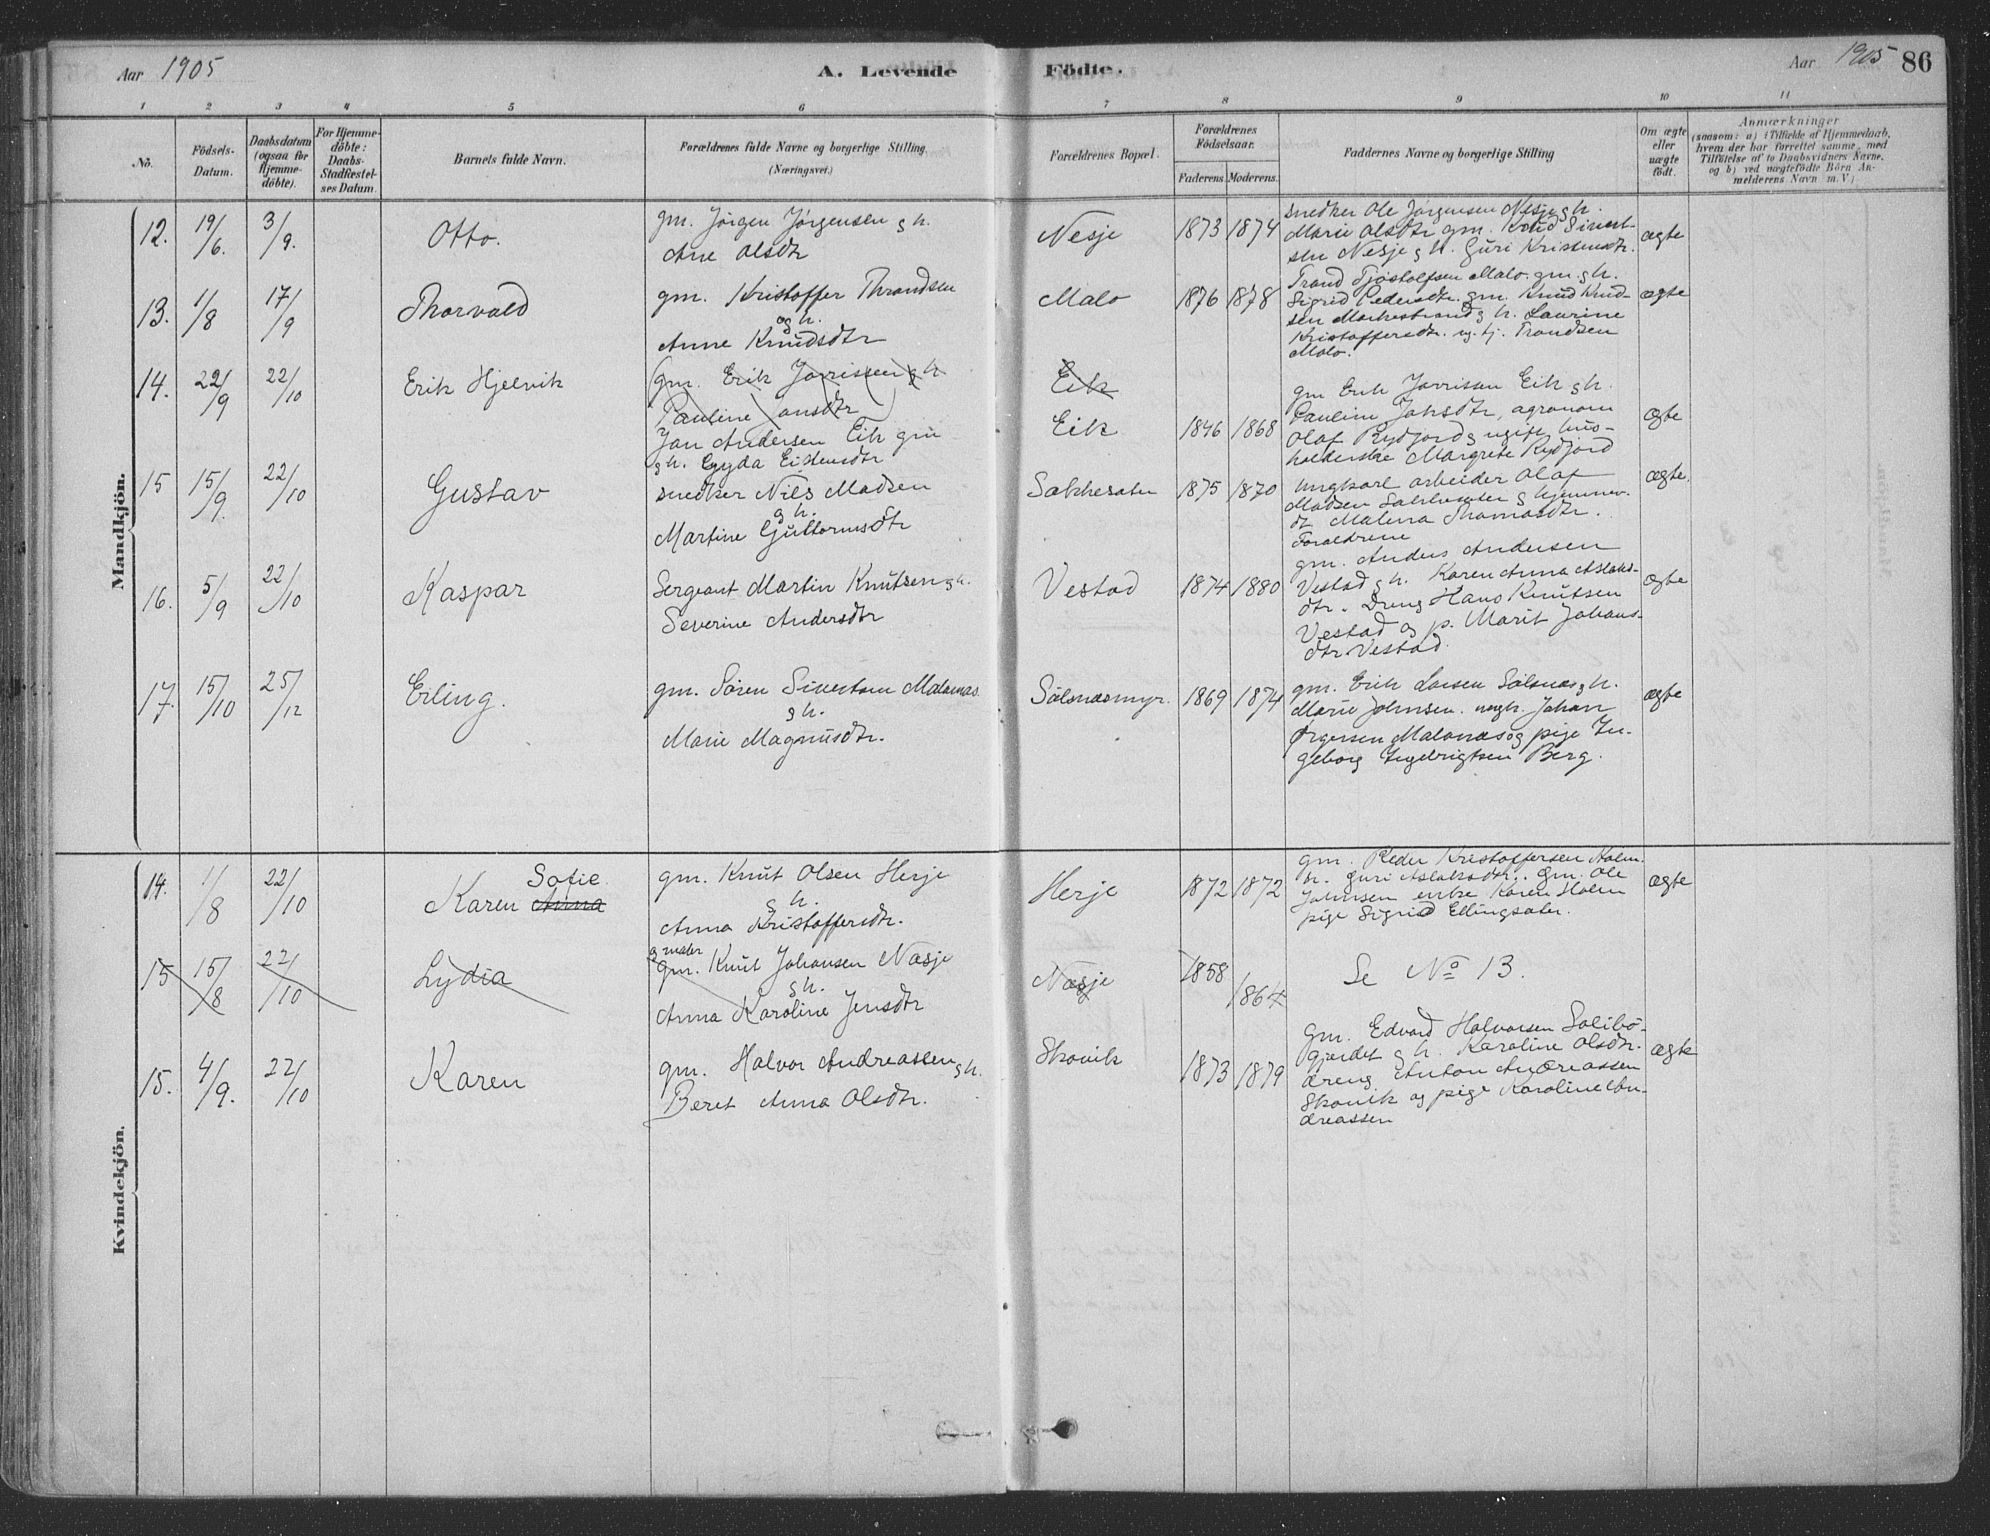 Aar 1905 A. Levende Födte. Aar 1905 86
1 2 3 4 5 6 7 8 9 10 11
No. Födsels-Datum. Daabsdatum (ogsaa for Hjemme-döbte). For Hjemme-döbte: Daabs-Stadfæstel-ses Datum. Barnets fulde Navn. Forældrenes fulde Navne og borgerlige Stilling (Næringsvei.) Forældrenes Bopæl. Forældrenes Födselsaar. Faderens. Moderens. Faddernes Navne og borgerlige Stilling Om ægte eller uægte födt. Anmærkninger
(saasom: a) i Tilfælde af Hjemmedaab, hvem der har forrettet samme, med Tilföielse af to Daabsvidners Navne, og b) ved uægtefödte Börn An-melderens Navn m. V.)
Mandkjön.
12. 19/6. 3/9. Otto. gm. Jørgen Jørgensen g h.
Ane Olsdtr
Nesje 1873 1874
snedker Ole Jørgensen Nesje g h.
Marie Olsdtr gm. Knud Sivert-
sen Nesje g h. Guri Kristensdtr.
ægte
13. 1/8 17/9 Thorvald gm. Kristoffer Thrandsen
og h.
Anne Knudsdtr
Malo 1876 1878
Trond Tjøstolfsen Malo. gm. g h.
Sigrid Pedersdtr. gm. Knud Knud-
sen Markestrand g h. Laurine
Kristoffersdtr. ug. tj. Trondsen
Malo.
ægte
14. 22/9 22/10 Erik Hjelvik (gm. Erik Jorrissen g h
Pauline Jonsdtr)
Jan Andersen Eik gm
g h. Gyda Eidensdtr
Eik
Eik 1846 1868
gm Erik Jorrisen Eik g h.
Pauline Johsdtr, agronom
Olaf Rydjord g ugift hus-
holderske Margrete Rydjord
ægte
15 15/9. 22/10 Gustav snedker Nils Madsen
g h.
Martine Guttormsdtr
Sakkesæter 1875 1870
ungkarl arbeider Olaf
Madsen Sakkesæter g hjemmev.
dt Malena Thomasdtr.
Forældrene
ægte.
16. 5/9 22/10 Kaspar Sergeant Martin Knutsen g h.
Severine Andersdtr
Vestad 1874 1880
gm. Anders Andersen
Vestad g h. Karen Anna Aslaks-
dtr. Dreng Hans Knutsen
Vestad og p. Marit Johans-
dtr. Vestad.
ægte
17. 15/10 25/12 Erling. gm. Søren Sivertsen Malonæs.
g h.
Marie Magnusdtr.
Sølsnæsmyr. 1869 1874
gm. Erik Larsen Sølsnæs g h.
Marie Johnsen. ungk. Johan
Ørgersen Malonæs og pige In-
geborg Ingebrigtsen Berg.
ægte
Kvindekjön.
14. 1/8 22/10 Sofie
Karen Anna
gm. Knut Olsen Herje
g h.
Anna Kristoffersdtr.
Herje 1872 1872
gm. Peder Kristoffersen Holm
h. Guri Aslaksdtr. gm. Ole
Johnsen enke Karen Holm
pige Sigrid Ellingsæter.
ægte
15 15/8 22/10 Lydia g maler
gm. Knut Johansen Næsje
g h.
Anna Karoline Jensdtr
Næsje 1858 1864
Se No 13.
15. 4/9. 22/10 Karen gm. Halvor Andreassen g h.
Beret Anna Olsdtr.
Skovik 1873 1879
gm. Edvard Halvorsen Solibø-
gjerdet g h. Karoline Olsdtr.
dreng Anton Andreassen
Skovik og pige Karoline An-
dreassen
ægte